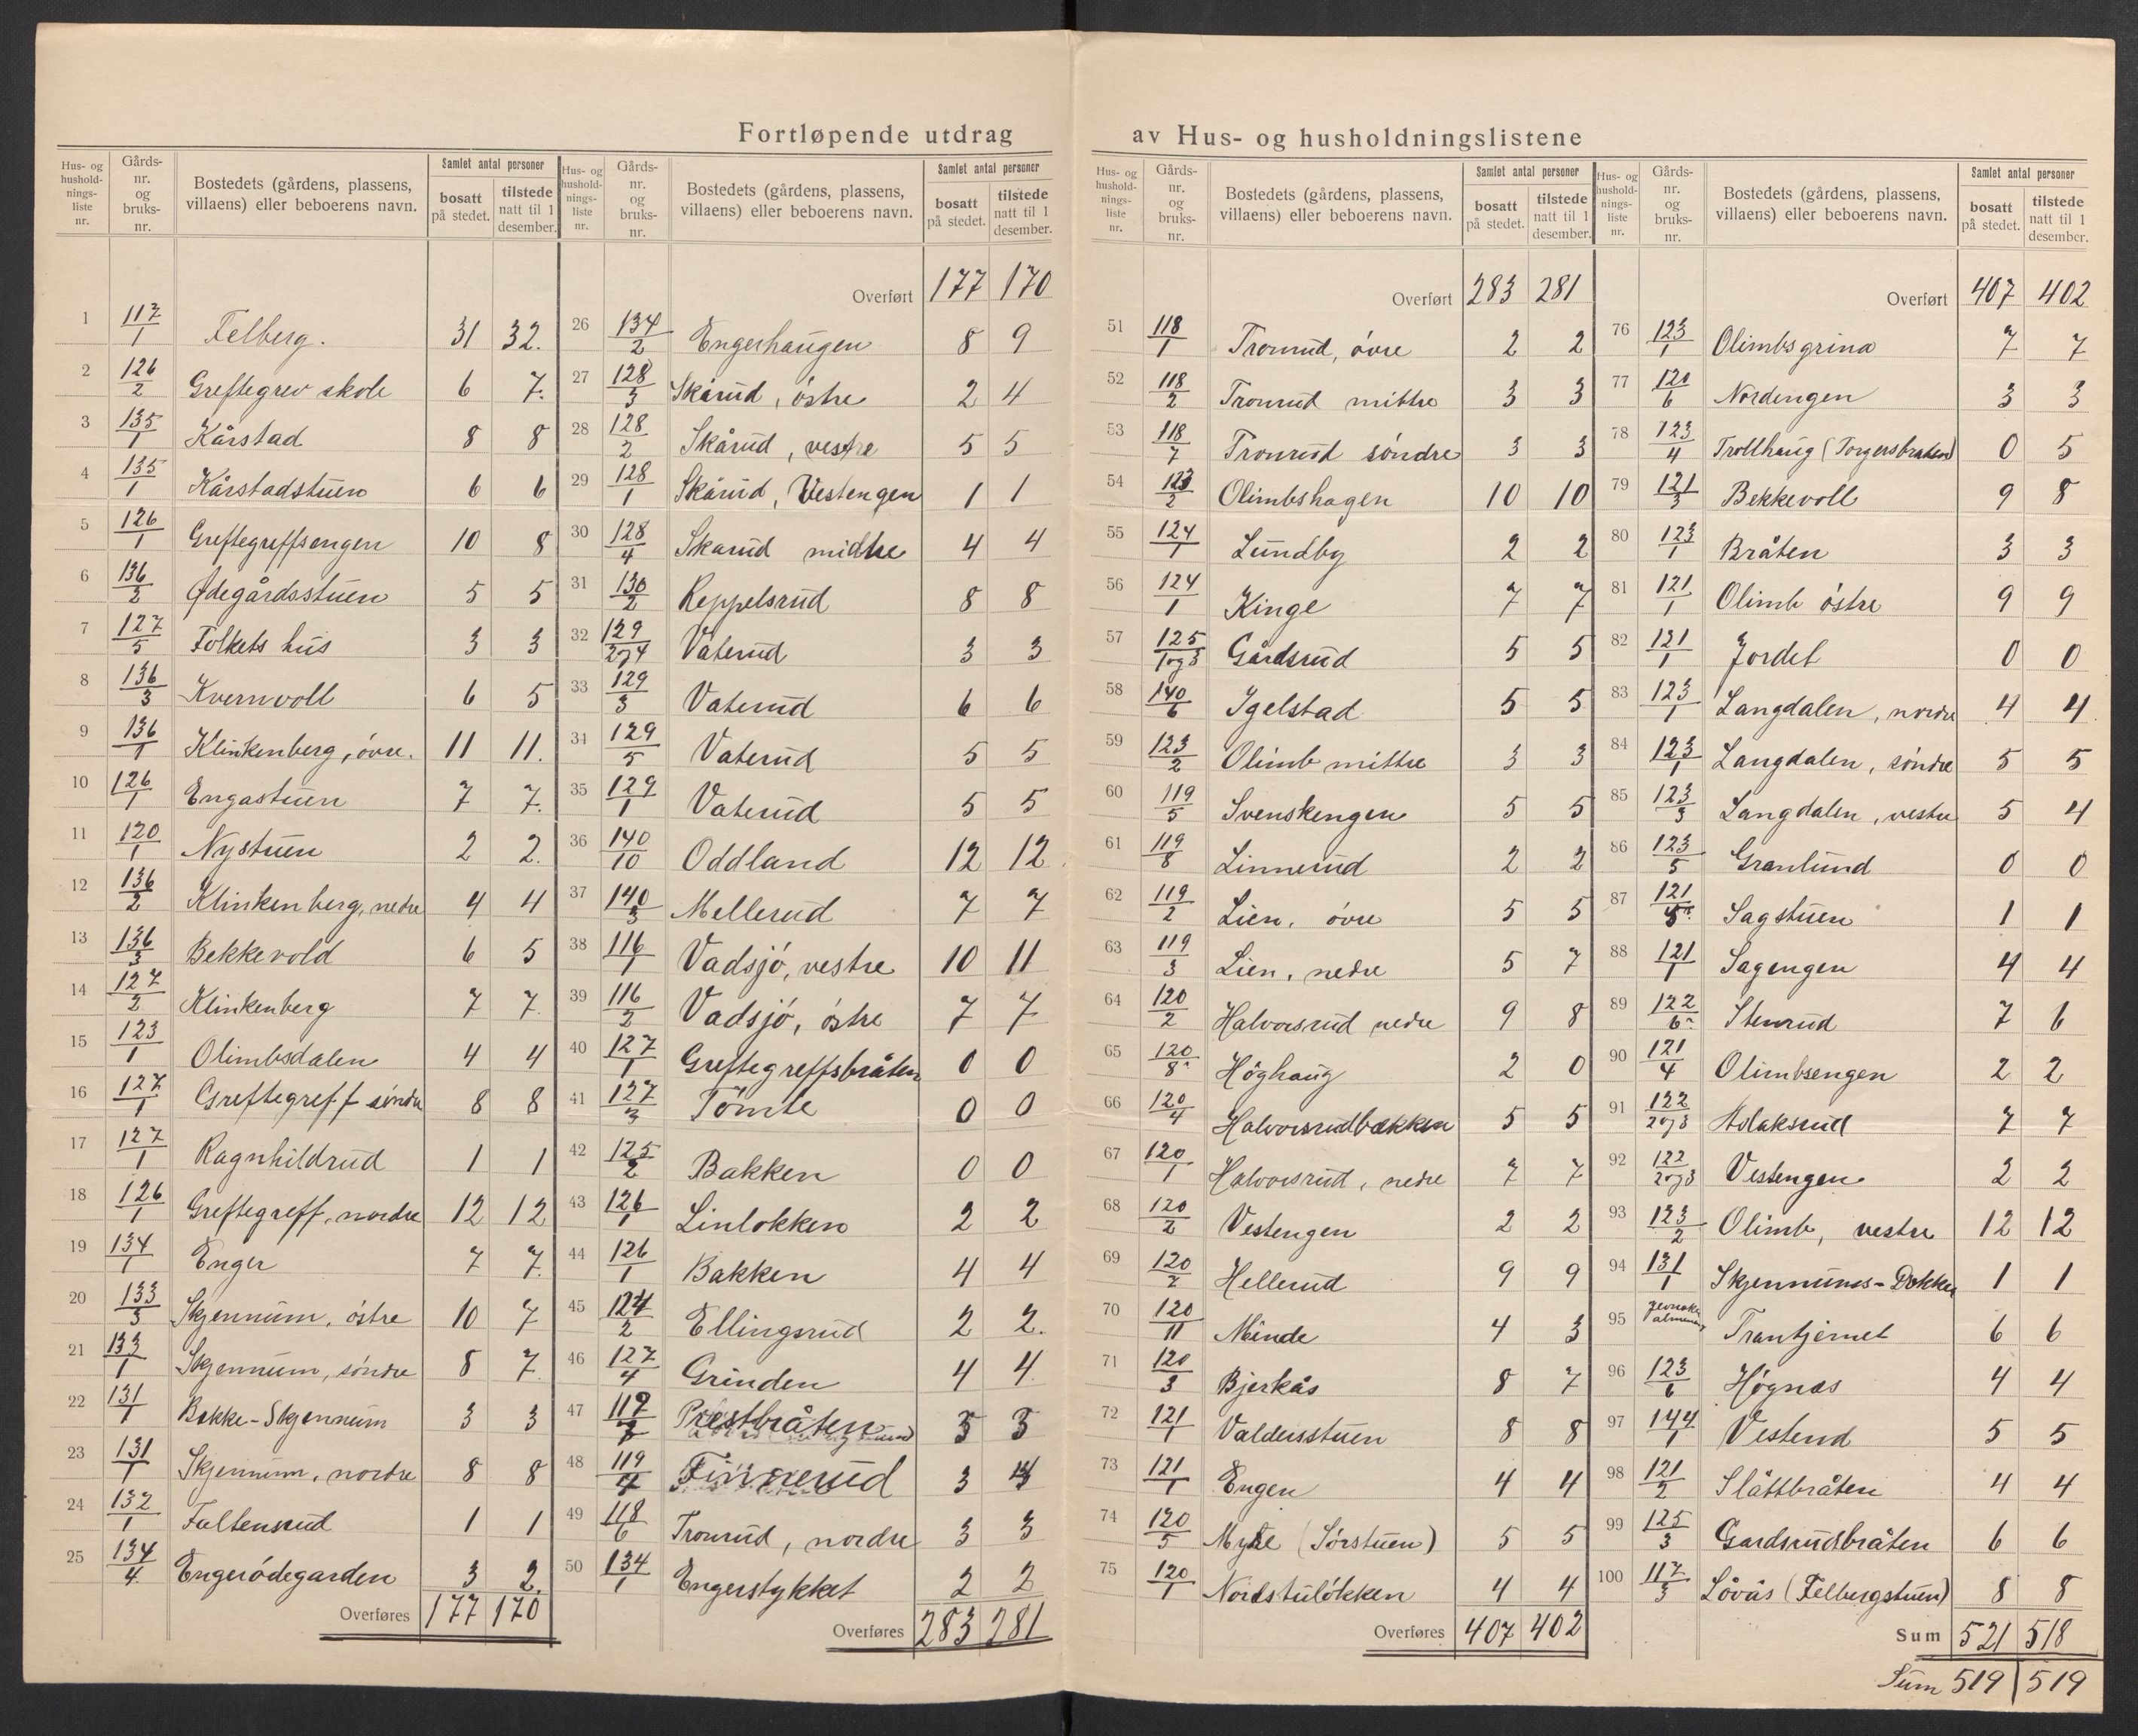 Fortløpende utdrag av Hus- og husholdningslistene
Hus- og husholdningsliste nr. | Gårds-nr. og bruks-nr. | Bostedets (gårdens, plassens, villaens) eller beboerens navn. | Samlet antal personer bosatt på stedet. | tilstede natt til 1 desember.
1 117/1 Felberg. 31 32.
2 126/2 Greftegrev skole 6 7.
3 135/1 Kårstad 8 8
4 135/1 Kårstadstuen 6 6
5 126/1 Greftegreffsengen 10 8
6 136/2 Ødegårdsstuen 5 5
7 127/5 Folkets hus 3 3
8 136/3 Kvernvoll 6 5
9 136/1 Klinkenberg, øvre. 11 11.
10 126/1 Engastuen 7 7.
11 120/1 Nystuen 2 2.
12 136/2 Klinkenberg, nedre 4 4
13 136/3 Bekkevold 6 5
14 127/2 Klinkenberg 7 7
15 123/1 Olimbsdalen 4 4
16 127/1 Greftegreff søndre 8 8
17 127/1 Ragnhildrud 1 1
18 126/1 Greftegreff, nordre 12 12
19 134/1 Enger 7 7.
20 133/3 Skjennum, østre 10 7
21 133/1 Skjennum, søndre 8 7.
22 131/1 Bakke-Skjennum 3 3
23 131/1 Skjennum, nordre 8 8
24 132/1 Faltensrud 1 1
25 134/4 Engerødegarden 3 2.
Overføres 177 170
Hus- og husholdningsliste nr. | Gårds-nr. og bruks-nr. | Bostedets (gårdens, plassens, villaens) eller beboerens navn. | Samlet antal personer bosatt på stedet. | tilstede natt til 1 desember.
Overført 177 170
26 134/2 Engerhaugen 8 9
27 128/3 Skårud, østre 2 4
28 128/2 Skårud, vestre 5 5
29 128/1 Skårud, Vestengen 1 1
30 128/4 Skarud midtre 4 4
31 130/2 Reppelsrud 8 8
32 129/2og4 Vaterud 3 3
33 129/3 Vaterud 6 6
34 129/5 Vaterud 5 5
35 129/1 Vaterud 5 5
36 140/10 Oddland 12 12
37 140/3 Mellerud 7 7
38 116/1 Vadsjø, vestre 10 11
39 116/2 Vadsjø, østre 7 7
40 127/1 Greftegreffsbråten 0 0
41 127/3 Tømte 0 0
42 125/2 Bakken 0 0
43 126/1 Linløkken 2 2
44 126/1 Bakken 4 4
45 124/2 Ellingsrud 2 2.
46 127/4 Grinden 4 4
47 Prestbråten 3 3
48 119/4 Finnerud 3 4
49 118/6 Tronrud, nordre 3 3
50 134/1 Engerstykket 2 2
Overføres 283 281
Hus- og husholdningsliste nr. | Gårds-nr. og bruks-nr. | Bostedets (gårdens, plassens, villaens) eller beboerens navn. | Samlet antal personer bosatt på stedet. | tilstede natt til 1 desember.
Overført 283 281
51 118/1 Tronrud, øvre 2 2
52 118/2 Tronrud mittre 3 3
53 118/7 Tronrud søndre 3 3
54 123/2 Olimbshagen 10 10
55 124/1 Lundby 2 2
56 124/1 Kinge 7 7
57 125/1og3 Gårdsrud 5 5
58 140/6 Igelstad 5 5
59 123/2 Olimb mittre 3 3
60 119/5 Svenskengen 5 5
61 119/8 Linnerud 2 2
62 119/2 Lien, øvre 5 5
63 119/3 Lien, nedre 5 7
64 120/2 Halvorsrud nedre 9 8
65 120/8 Høghaug 2 0
66 120/4 Halvorsrudbakken 5 5
67 120/1 Halvorsrud, nedre 7 7
68 120/2 Vestengen 2 2
69 120/7 Hellerud 9 9
70 120/11 Minde 4 3
71 120/3 Bjerkås 8 7
72 121/1 Valdersstuen 8 8
73 121/1 Engen 4 4
74 120/5 Myre (Sørstuen) 5 5
75 120/1 Nordstuløkken 4 4
Overføres 407 402
Hus- og husholdningsliste nr. | Gårds-nr. og bruks-nr. | Bostedets (gårdens, plassens, villaens) eller beboerens navn. | Samlet antal personer bosatt på stedet. | tilstede natt til 1 desember.
Overført 407 402
76 123/1 Olimbsgrina 7 7
77 120/6 Nordengen 3 3
78 123/4 Trollhaug (Torgersbraten) 0 5
79 121/3 Bekkevoll 9 8
80 123/1 Bråten 3 3
81 121/1 Olimb østre 9 9
82 121/1 Jordet 0 0
83 123/1 Langdalen, nordre 4 4
84 123/1 Langdalen, søndre 5 5
85 123/3 Langdalen, vestre 5 4
86 123/5 Granlund 0 0
87 121/5 Sagstuen 1 1
88 121/1 Sagengen 4 4
89 122/6 Stenrud 7 6
90 121/4 Olimbsengen 2 2
91 122/2og3 Aslaksrud 7 7
92 122/2og3 Vestengen 2 2
93 123/2 Olimb, vestre 12 12
94 131/1 Skjennums-Dokken 1 1
95 Jevnaker almenning Trantjernet 6 6
96 123/6 Høgnæs 4 4
97 144/1 Vestend 5 5
98 121/2 Slåttbråten 4 4
99 125/3 Gardsrudsbråten 6 6
100 117/3 Løvås (Felbergstuen) 8 8
Sum 521 518
Sum 519 519